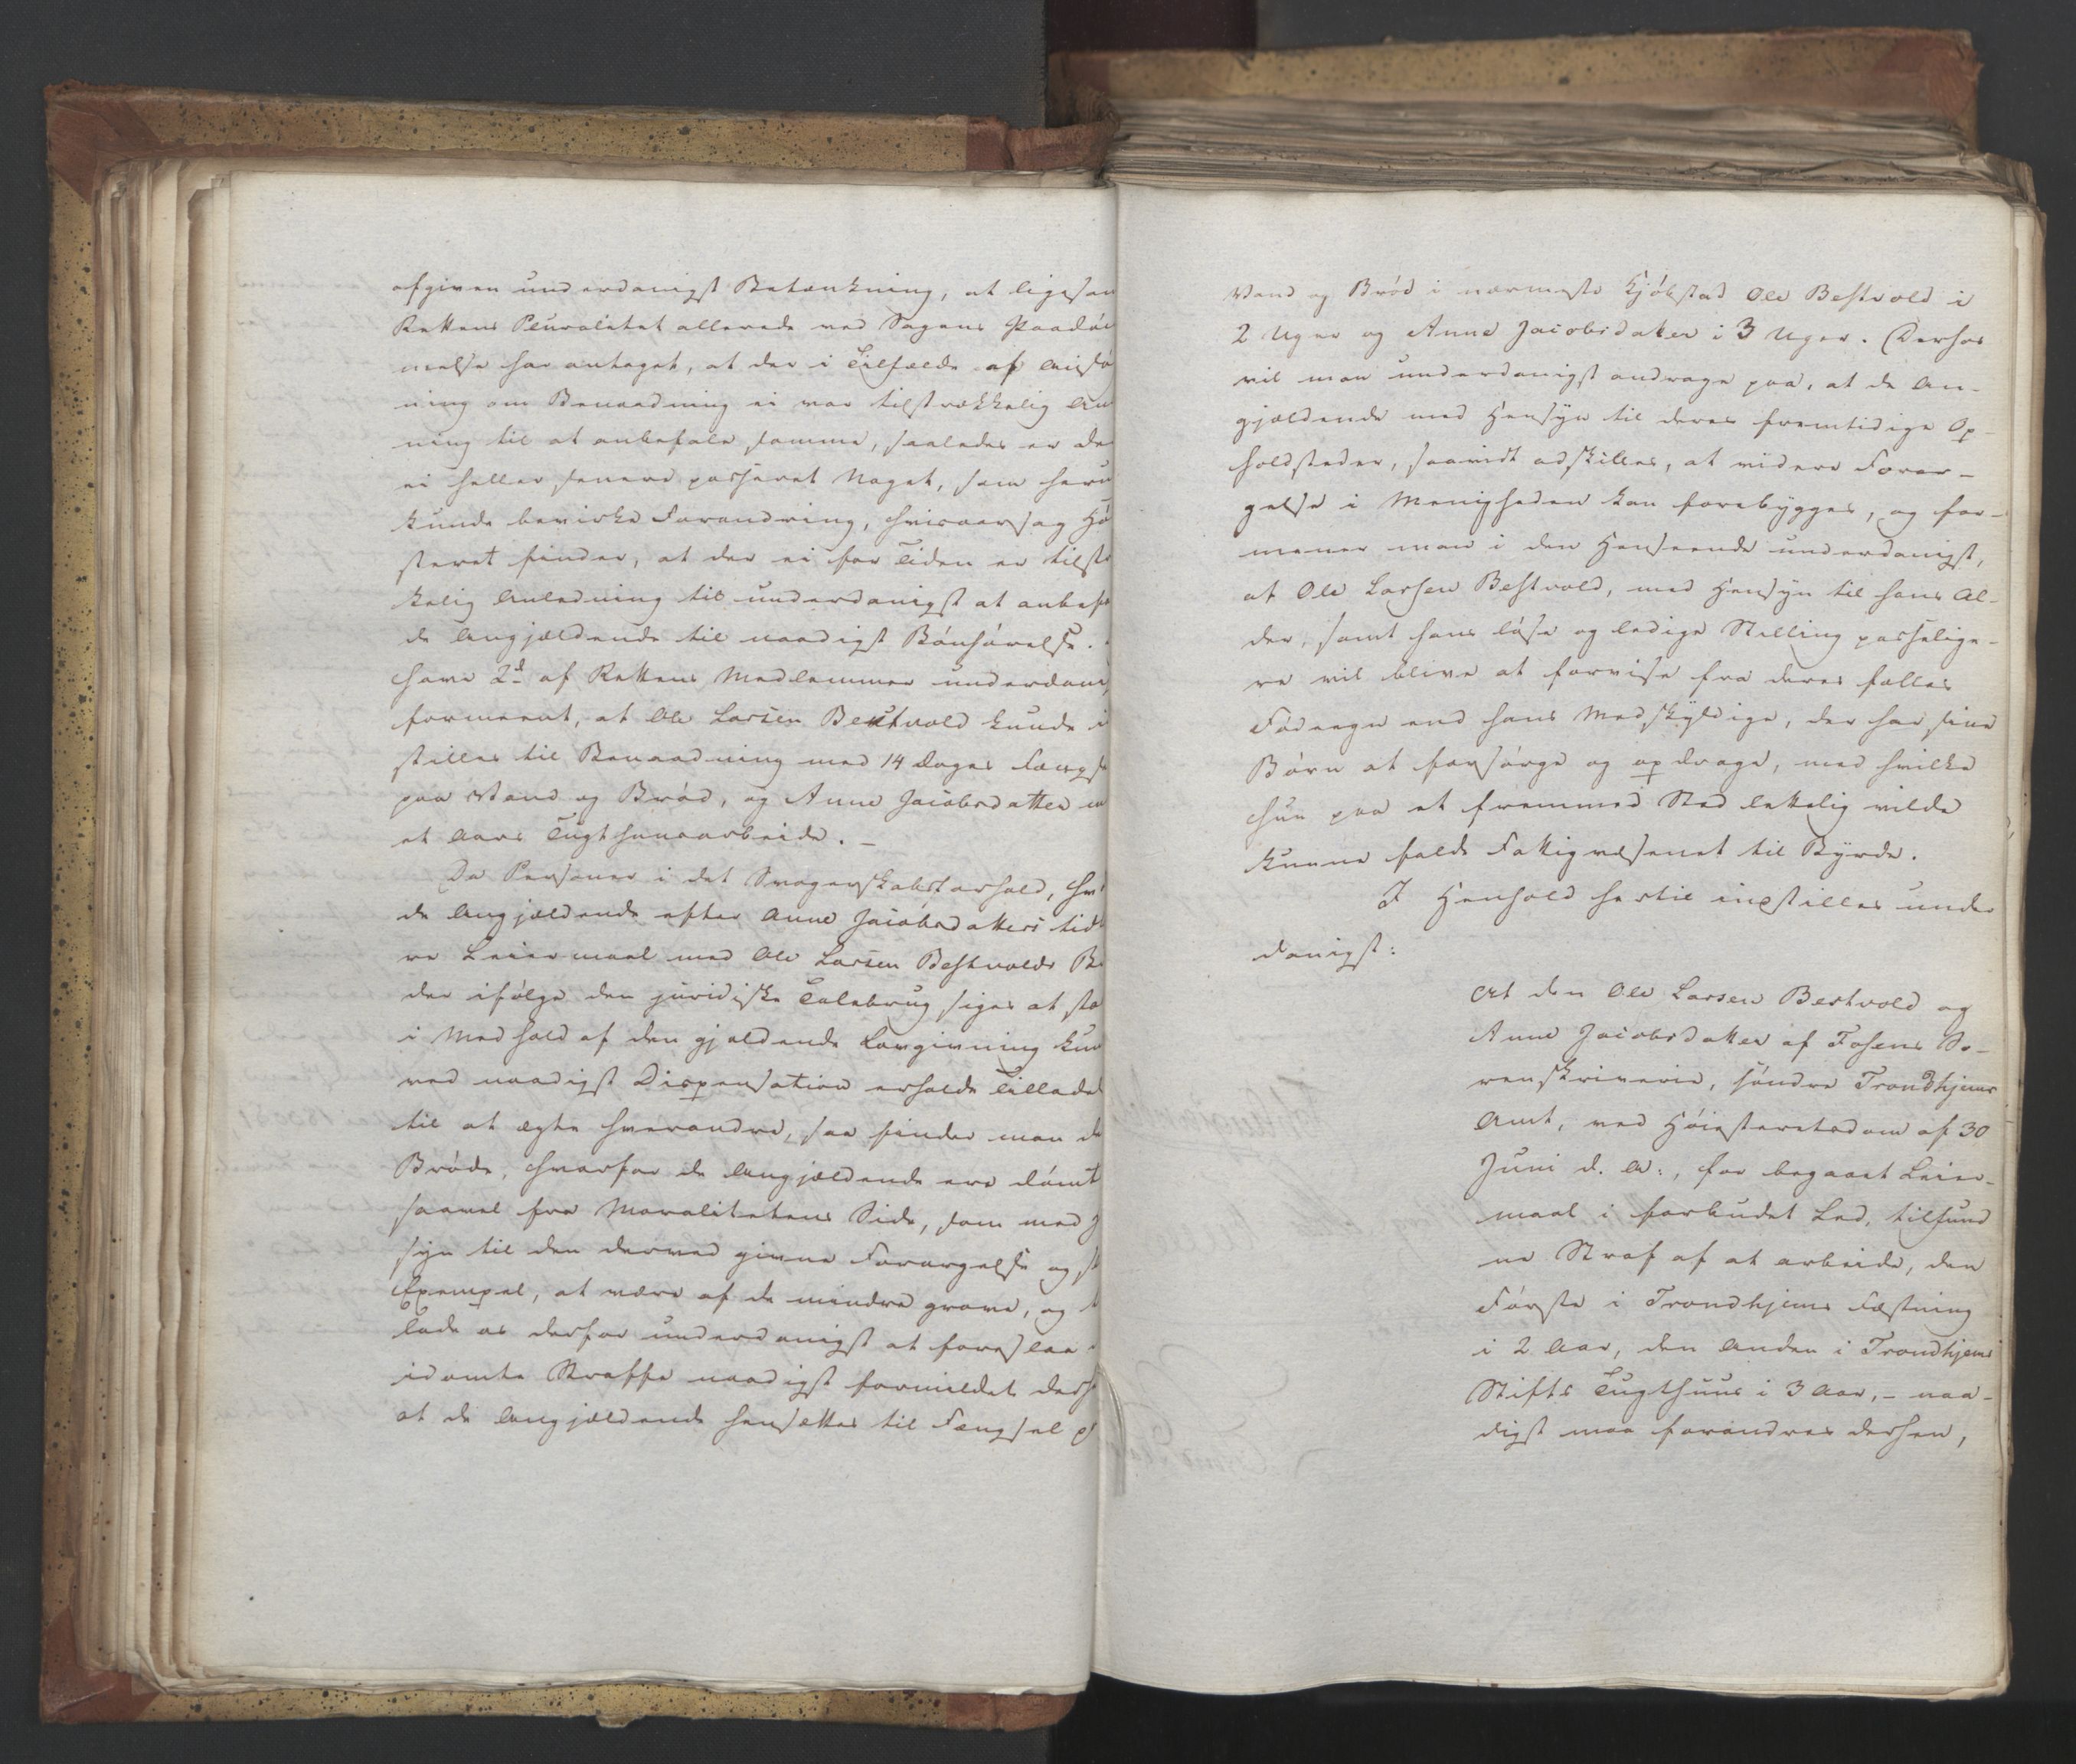 afgiven underdanigst Betænkning, at ligesom
Rettens Pluralitet allerede ved Sagens Paadøm
melse har antaget, at der i Tilfælde af Ansø
ning om Benaadning ei var tilstrækkelig An
ning til at anbefale samme, saaledes er de
ei heller senere passeret Noget, som heru
kunde bevirke Forandring, hvisaarsag Hø
steret finder, at der ei for Tiden er tilst
kelig Anledning til underdanigst at anbef
de Angjældende til naadigst Bønhørelse.
have 2d af Rettens Medlemmer underdani
formeent, at Ole Larsen Bestvold kunde i
stilles til Benaadning med 14 Dages Fængs
paa Vand og Brød, og Anne Jacobsdatter m
et Aars Tugthuusarbeide. –
Da Personer i det Svogerskabsforhold, hv
de Angjældende efter Anne Jacobsdatters tid
re Leiermaal med Ole Larsen Bestvolds B
der ifølge den juridiske Talebrug siges at sta
i Medhold af den gjældende Lovgivning kun
ved naadigst Dispensation erholde Tillade
til at ægte hverandre, saa finder man de
Brøde, hvorfor de Angjældende ere dømt
saavel fra Moralitetens Side, som med H
syn til den derved givne Forargelse og sl
Exempel, at være af de mindre grove, og t
lade os derfor underdanigst at foreslaa
idømte Straffe naadigst formildet derh
at de Angjældende hensættes til Fængsel p
Vand og Brød i nærmeste Kjøbstad Ole Bestvold i
2 Uger og Anne Jacobsdatter i 3 Uger. Derhos
vil man underdanigst andrage paa, at de An-
gjældende med Hensyn til deres fremtidige Op-
holdsteder, saavidt adskilles, at videre Forar-
gelse i Menigheden kan forebygges, og for-
mener man i den Henseende underdanigst,
at Ole Larsen Bestvold, med Hensyn til hans Al-
der, samt hans løse og ledige Stilling passelige-
re vil blive at forvise fra deres fælles
Fødeegn end hans Medskyldige, der har sine
Børn at forsørge og opdrage, med hvilke
hun paa et fremmed Sted lettelig vilde
kunne falde Fattigvæsenet til Byrde.
I Henhold hertil indstilles under
danigst:
At den Ole Larsen Bestvold og
Anne Jacobsdatter af Fosens So-
renskriverie, søndre Trondhjems
Amt, ved Høiesteretsdom af 30
Juni d. A:, for begaaet Leier-
maal i forbudet Led, tilfund
ne Straf af at arbeide, den
Første i Trondhjems Fæstning
i 2 Aar, den Anden i Trondhjems
Stifts Tugthuus i 3 Aar, – naa-
digst maa forandres derhen,